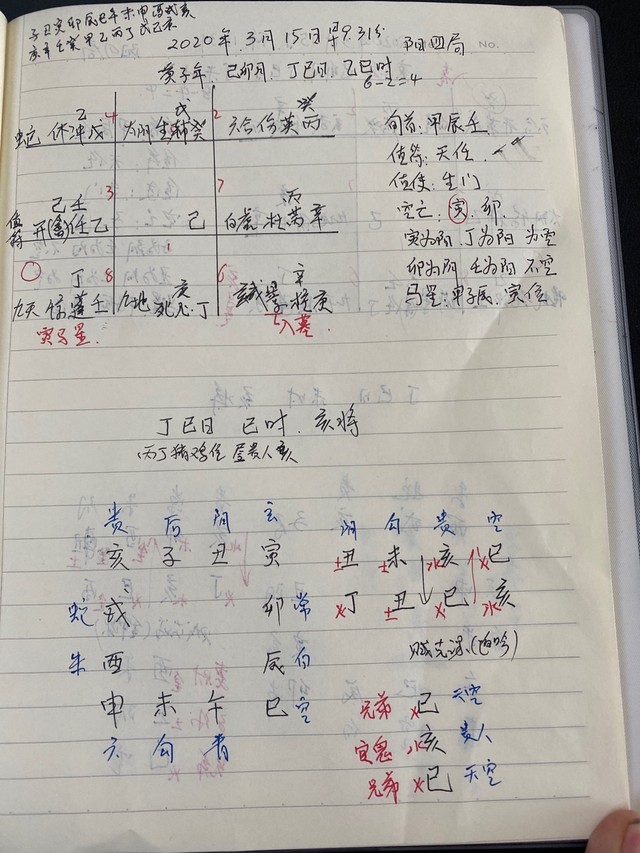 子丑寅卯辰巳午未申酉戌亥
2020年.3月15日 9:31分 阳四局
No.
庚子年 己卯月 丁巳日 乙巳时
6-2=4
乙 4 戊 2 癸
蛇 休冲戊 太阴生辅癸 六合伤英丙
旬首:甲辰壬
值符:天任
值使:生门
空亡:寅.卯.
己壬 3 7 丙
值符 开(禽)任乙 己 白虎 杜芮辛
寅为阳 丁为阳 为空
卯为阴 壬为阳 不空
马星:甲子辰 寅位
丁 8 1 庚 6 辛
九天 惊蓬壬 九地 死心丁 玄武 景柱庚
寅马星. 入墓.
丁巳日 巳时.亥将
丙丁猪鸡位 登贵人亥
贵 后 阴 玄 阴 勾 贵 空
亥 子 丑 寅 土丑 土未 水亥 火巳
蛇 戌 卯 常 火丁 土丑 火巳 水亥
朱 酉 辰 白 贼克课.(伯吟)
申 未 午 巳 空 兄弟 火巳 天空
六 勾 青 官鬼 水亥 贵人
兄弟 火巳 天空